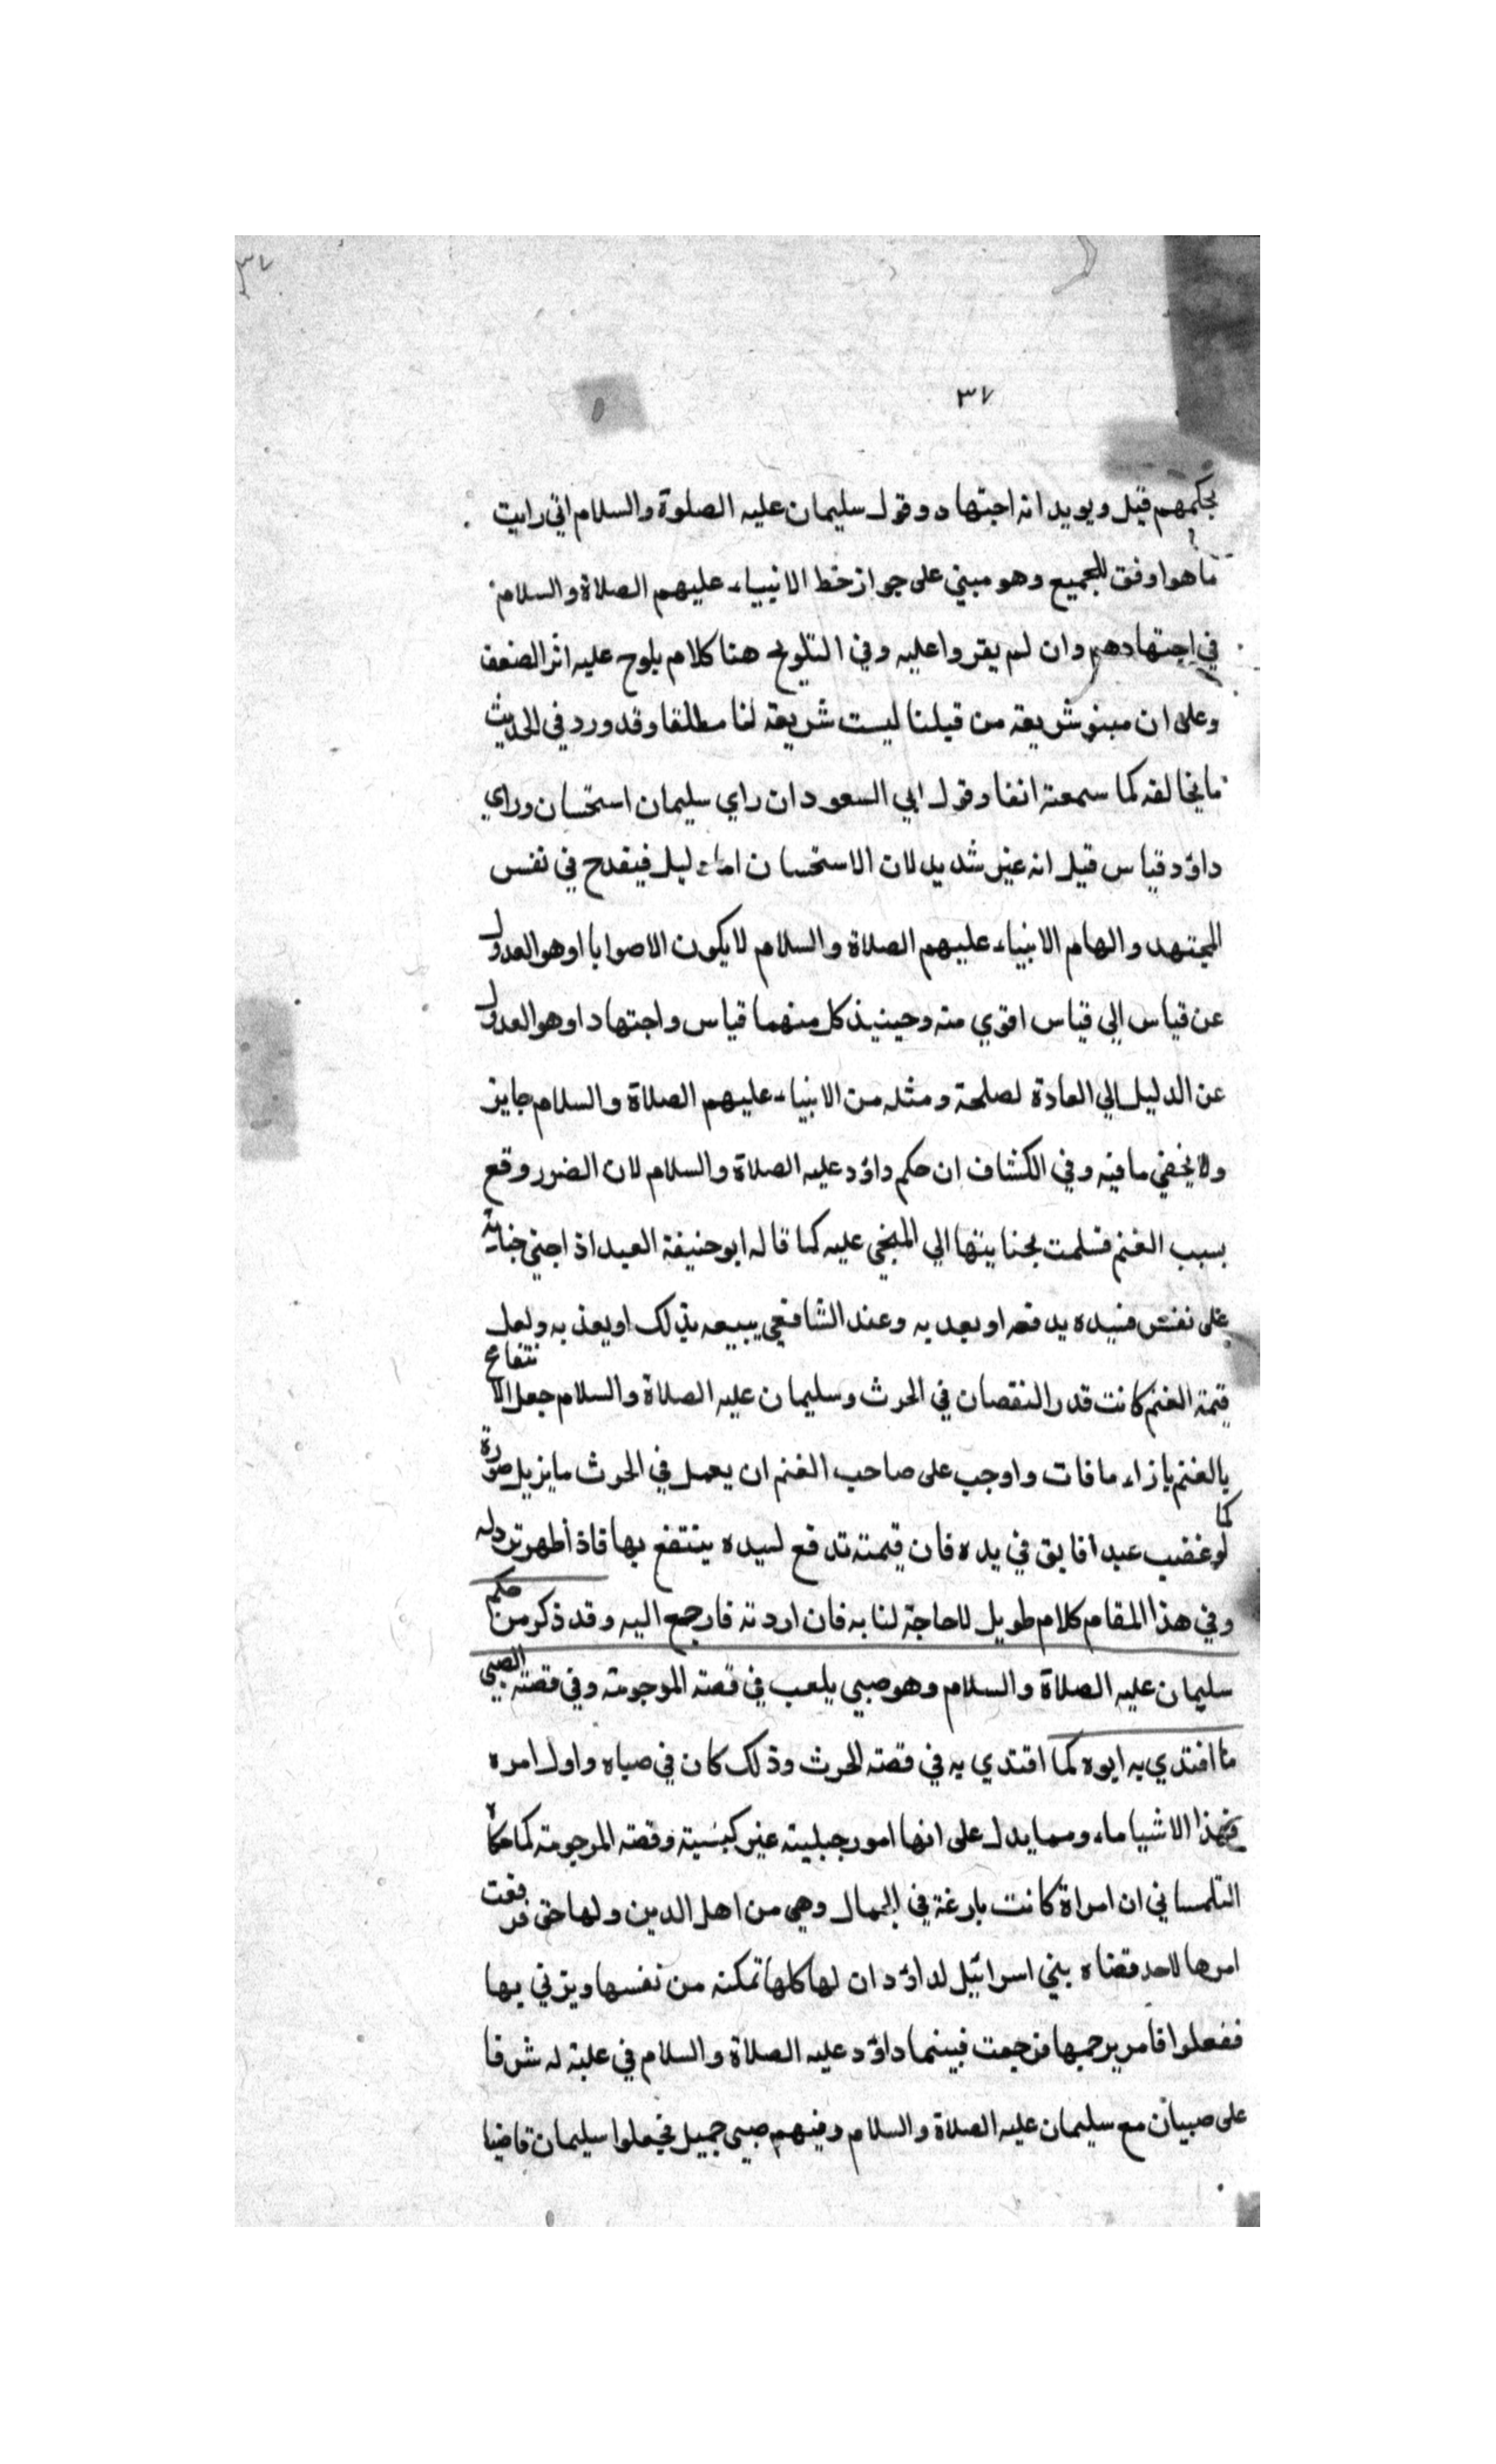 ٣٧
٣٧
بحكمهم قيل ويويد انه اجتهاد وقول سليمان عليه الصلوة والسلام اني رايت
ما هو اوفق للجميع وهو مبني على جواز خطا الانبياء عليهم الصلاة والسلام
في اجتهادهم وان لم يقروا عليه وفي التلويح هنا كلام يلوح عليه اثر الضعف
وعلى ان مبنو شريعة من قبلنا ليست شريعة لنا مطلقا وقد ورد في الحديث
ما يخالفه كما سمعته انفا وقول ابي السعود ان راي سليمان استحسان وراي
داؤد قياس قيل انه غير شديد لان الاستحسان اما دليل فينقدح في نفس
المجتهد والهام الانبياء عليهم الصلاة والسلام لا يكون الا صوابا او هو العدول
عن قياس الي قياس اقوي منه وحينيذ كل منهما قياس واجتهاد او هو العدول
عن الدليل الي العادة لصلحة ومثله من الانبياء عليهم الصلاة والسلام جايز
ولا يخفي ما فيه وفي الكشاف ان حكم داؤد عليه الصلاة والسلام لان الضرر وقع
بسبب الغنم فسلمت بجنايتها الي المجني عليه كما قاله ابو حنيفة العبد اذا جني جناية
على نفس فسيده يدفعه او يعديه وعند الشافعي يبيعه بذلك او يعذيه ولعل
قيمة الغنم كانت قدر النقصان في الحرث وسليمان عليه الصلاة والسلام جعل الانتفاع
بالغنم بازاء ما فات واوجب على صاحب الغنم ان يعمل في الحرث ما يزيل صورة
كما لو غضب عبدا فابق في يده فان قيمته تدفع لسيده ينتفع بها فاذا ظهر تردله
وفي هذا المقام كلام طويل لا حاجة لنا به فان اردته فارجع اليه وقد ذكر من حكم
سليمان عليه الصلاة والسلام وهو صبي يلعب في قصة الموجومة وفي قصة الصبي
ما اقتدي به ابوه كما اقتدي به في قصة الحرث وذلك كان في صباه واول امره
فهذا الاشيا ماء ومما يدل على انها امور جبلية غير كبسية وقصة المرجومة كما حكاه
التلمساني ان امراة كانت بارغة في الجمال وهي من اهل الدين ولها حق فرفعت
امرها لاحد قضاه بني اسرائيل لداؤد ان لها كلها تمكنه من نفسها ويزني بها
ففعلوا فامر برجمها فرجمت فبينما داؤد عليه الصلاة والسلام في علية له شرفا
على صبيان مع سليمان عليه الصلاة والسلام وفيهم صبي جميل فجعلوا سليمان قاضيا